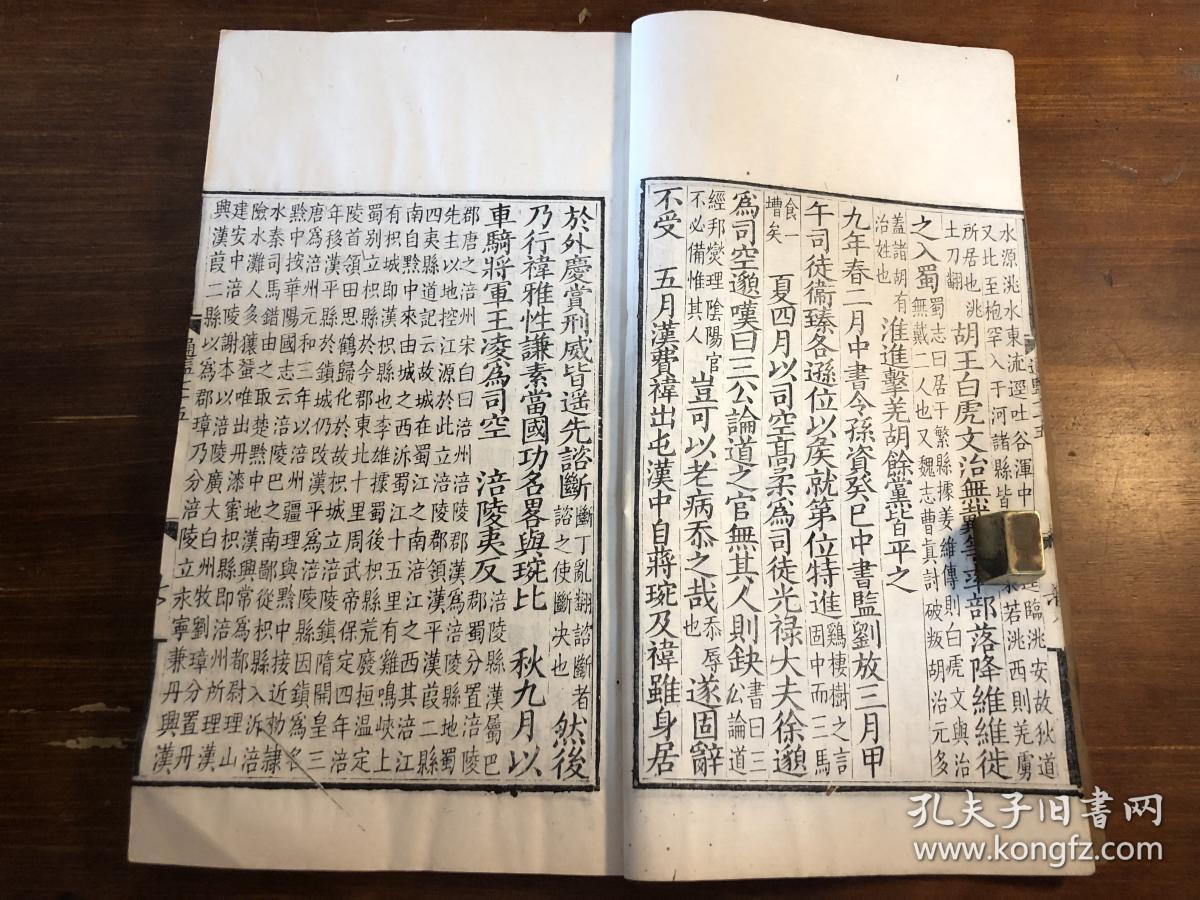 水源洮水東流逕吐谷渾中逕臨洮安故狄道
又北至枹罕入于河諸縣皆若洮西則羌虜
所居也洮土刀翻 胡王白虎文治無戴等率部落降維維徙
之入蜀蜀志曰居于繁縣據姜維傳則白虎文與治無戴二人也又魏志曹真討破叛胡治元多
蓋諸胡有治姓也 淮進擊羌胡餘黨皆平之
九年春二月中書令孫資癸巳中書監劉放三月甲
午司徒衞臻各遜位以矦就第位特進雞棲樹之言固中而三馬
食一槽矣 夏四月以司空髙柔爲司徒光禄大夫徐邈
爲司空邈嘆曰三公論道之官無其人則缺書曰三公論道
經邦燮理陰陽官不必備惟其人 豈可以老病忝之哉忝辱也 遂固辭
不受 五月漢費禕出屯漢中自蔣琬及禕雖身居
於外慶賞刑威皆遥先諮斷斷丁亂翻諮斷者諮之使斷决也 然後
乃行禕雅性謙素當國功名畧與琬比 秋九月以
車騎將軍王凌爲司空 涪陵夷反涪陵縣漢屬巴郡蜀分置涪陵
郡唐之涪州宋白曰涪州涪陵郡漢爲涪陵縣地蜀
先主以地控江源於此立涪陵郡領漢平漢葭二縣
四夷縣道記云故城在蜀江之南涪江之西其涪江
南自黔中來由城之西泝蜀江十五里有雞鳴峽上
有枳城即漢枳縣也李雄據蜀後枳縣荒廢桓温定
蜀别立枳縣於今郡東北十里周武帝保定四年涪
陵首領田思鶴歸化於故枳城立涪陵鎮隋開皇三
年移漢平縣於鎮城仍改漢平爲涪陵縣因鎮爲名
唐爲涪州元和三年以涪州疆理與黔中接近勑隸
黔中按華陽國志云涪陵巴之南鄙從枳縣入泝涪
水秦司馬錯由之取楚黔中地漢興常爲都尉理山
險水灘人多獽蜑唯出丹漆蜜枳縣即州所理漢
建安中涪陵謝本以涪陵廣大白州牧劉璋分置丹
興漢葭二縣以爲郡璋乃分涪陵立永寧兼丹興漢
孔夫子旧书网
www.kongfz.com